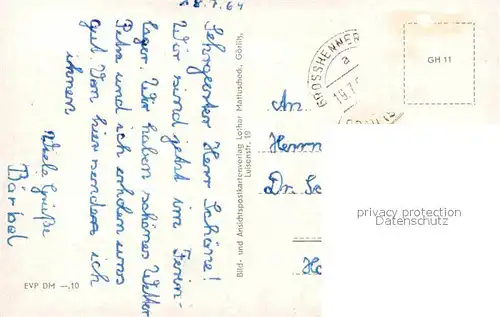 18.7.64
Sehrgeerter Herr Schöne!
Wir sind jetzt im Ferin-
lager. Wir haben schönes Wetter
Petra und ich erholen uns
gut. Von hier sendes ich
ihnen
Viele Grüße
Bärbel
EVP DM —,10
Bild- und Ansichtskartenverlag Lothar Martuscheck, Görlitz,
Luisenstr. 19
GROSSHENNER
a
19.7.
GH 11
An
Herrn
Dr. Sc
Ho
privacy protection
watermark